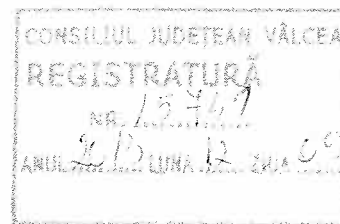 CONSILIUL JUDEȚEAN VÂLCEA
REGISTRATURĂ
NR. 15747
ANUL 2013 LUNA 12 ZIUA